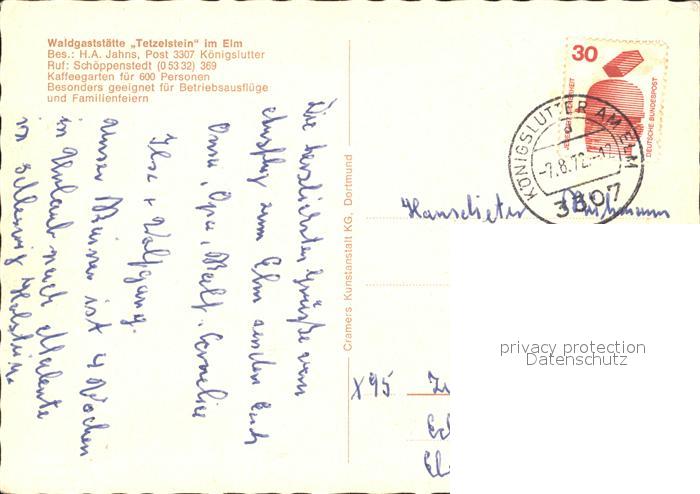 Waldgaststätte „Tetzelstein“ im Elm
Bes.: H.A. Jahns, Post 3307 Königslutter
Ruf: Schöppenstedt (0 53 32) 369
Kaffeegarten für 600 Personen
Besonders geeignet für Betriebsausflüge
und Familienfeiern
Die herzlichsten Grüße vom
Ausflug zum Elm senden Euch
Oma, Opa, Ralf, Cornelia
Ilse + Wolfgang.
Unser Reiner ist 4 Wochen
in Urlaub nach Malente
in Schleswig Holstein
Cramers Kunstanstalt KG, Dortmund
30
JEDERZEIT SICHERHEIT
DEUTSCHE BUNDESPOST
KÖNIGSLUTTER AM ELM
a
-7.8.72.-12
3307
Hansdieter
X95
privacy protection
Datenschutz